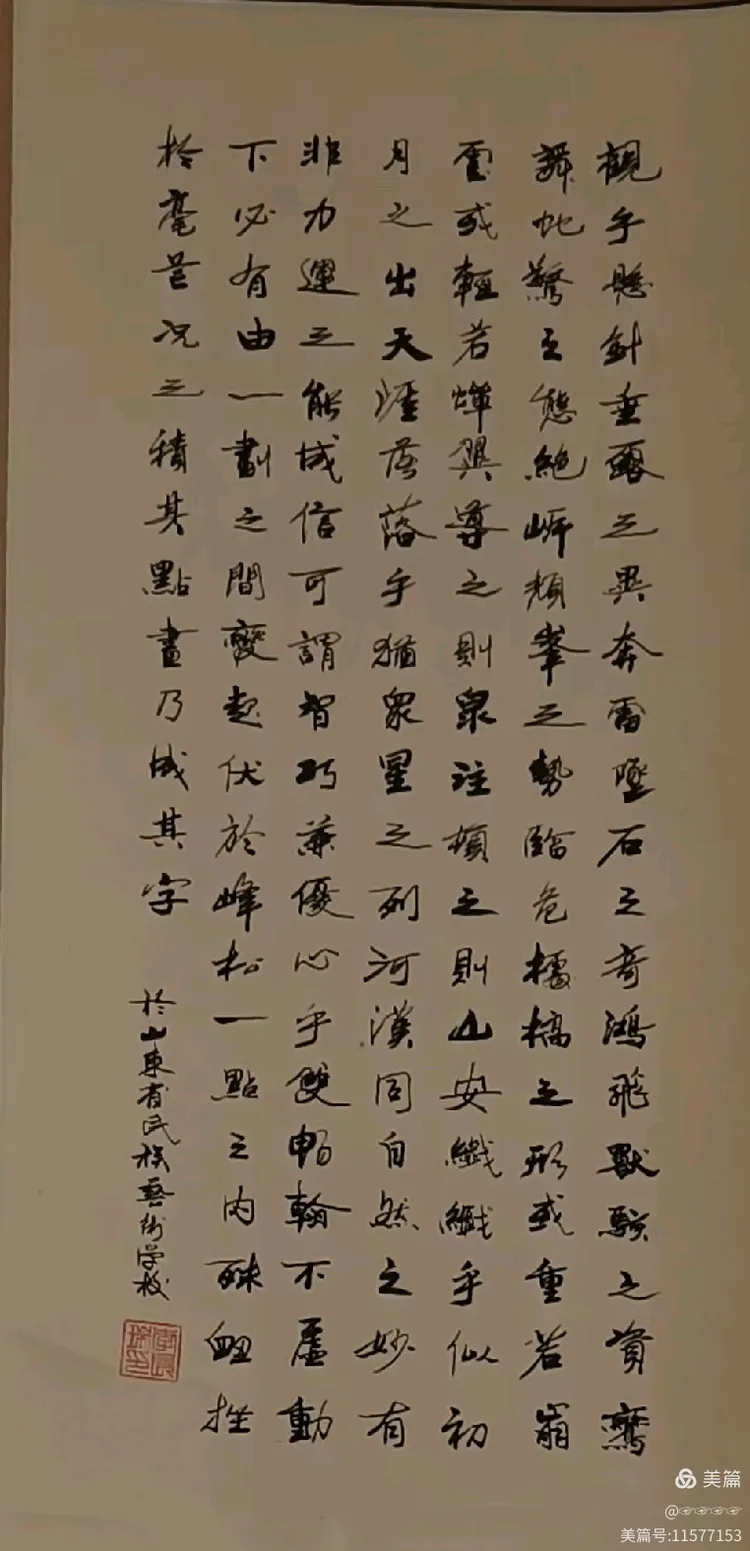 觀乎懸針垂露之異奔雷墜石之奇鴻飛獸駭之資鸞
舞虵驚之態絕岸頹峯之勢臨危據槁之形或重若崩
雲或輕若蟬翼導之則泉注頓之則山安纖纖乎似初
月之出天涯落落乎猶衆星之列河漢同自然之妙有
非力運之能成信可謂智巧兼優心手雙暢翰不虛動
下必有由一劃之間變起伏於峰杪一點之内殊衄挫
於毫芒况之積其點畫乃成其字
於山東省民族藝術学校
美篇
@☞☞☞☞
美篇号:11577153